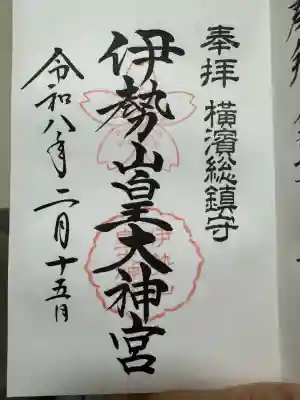 奉拝 横濱総鎮守
伊勢山皇大神宮
令和八年二月十五日